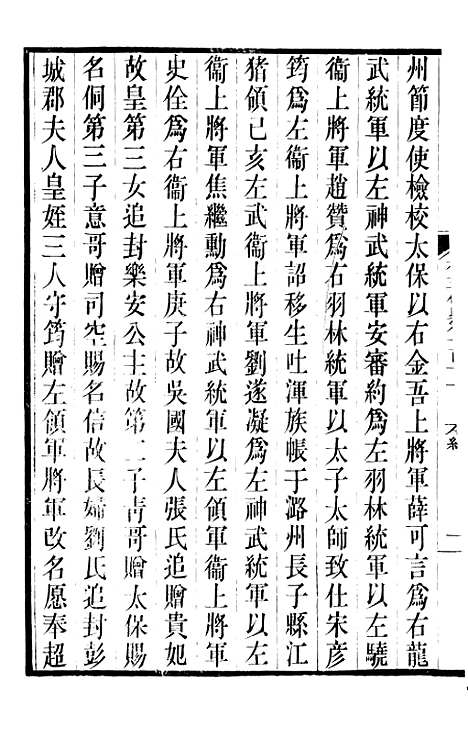 州節度使檢校太保以右金吾上將軍薛可言爲右龍
武統軍以左神武統軍安審約爲左羽林統軍以左驍
衞上將軍趙贊爲右羽林統軍以太子太師致仕宋彥
筠爲左衞上將軍詔移生吐渾族帳于潞州長子縣江
猪嶺己亥左武衞上將軍劉遂凝爲左神武統軍以左
衞上將軍焦繼勳爲右神武統軍以左領軍衞上將軍
史佺爲右衞上將軍庚子故吳國夫人張氏追贈貴妃
故皇第三女追封樂安公主故第二子青哥贈太保賜
名侗第三子意哥贈司空賜名信故長婦劉氏追封彭
城郡夫人皇姪三人守筠贈左領軍將軍改名愿奉超